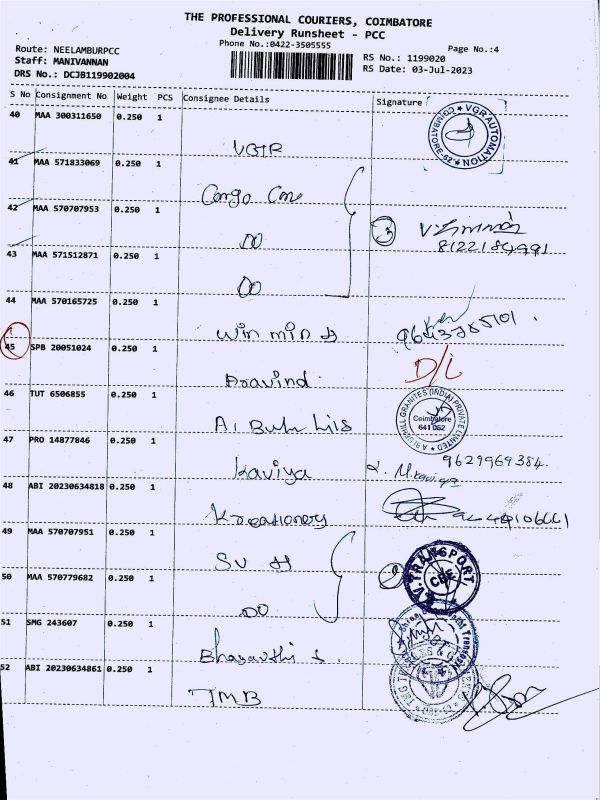 THE PROFESSIONAL COURIERS, COIMBATORE
Delivery Runsheet - PCC
Phone No.:0422-3505555
Page No.:4
Route: NEELAMBURPCC
Staff: MANIVANNAN
DRS No.: DCJB119902004
RS No.: 1199020
RS Date: 03-Jul-2023
S No Consignment No Weight PCS Consignee Details Signature
40 MAA 300311650 0.250 1
VGR AUTOMATION
COIMBATORE-62
41 MAA 571833069 0.250 1
Cargo Care
42 MAA 570707953 0.250 1
DO
3
8122184991
43 MAA 571512871 0.250 1
DO
44 MAA 570165725 0.250 1
win min
45 SPB 20051024 0.250 1
D/L
Aravind
46 TUT 6506855 0.250 1
GRANITES (INDIA) PRIVATE LIMITED
Coimbatore
641 062
47 PRO 14877846 0.250 1
Kaviya
9629969384
48 ABI 20230634818 0.250 1
Kreationery
49 MAA 570707951 0.250 1
SV
V.TRANSPORT
CBE
50 MAA 570779682 0.250 1
DO
51 SMG 243607 0.250 1
Bhagavathi S.
52 ABI 20230634861 0.250 1
TMB